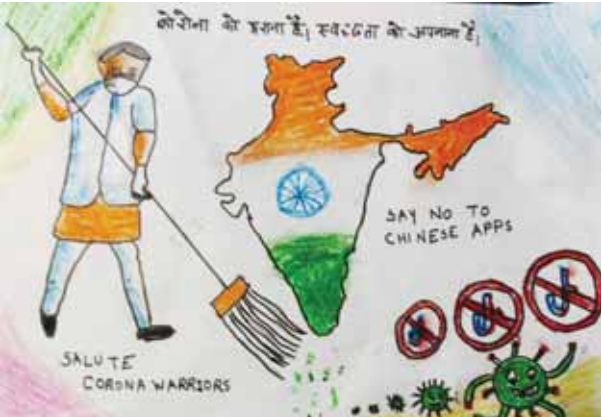 कोरोना को हराना है। स्वच्छता को अपनाना है।
SAY NO TO
CHINESE APPS
SALUTE
CORONA WARRIORS